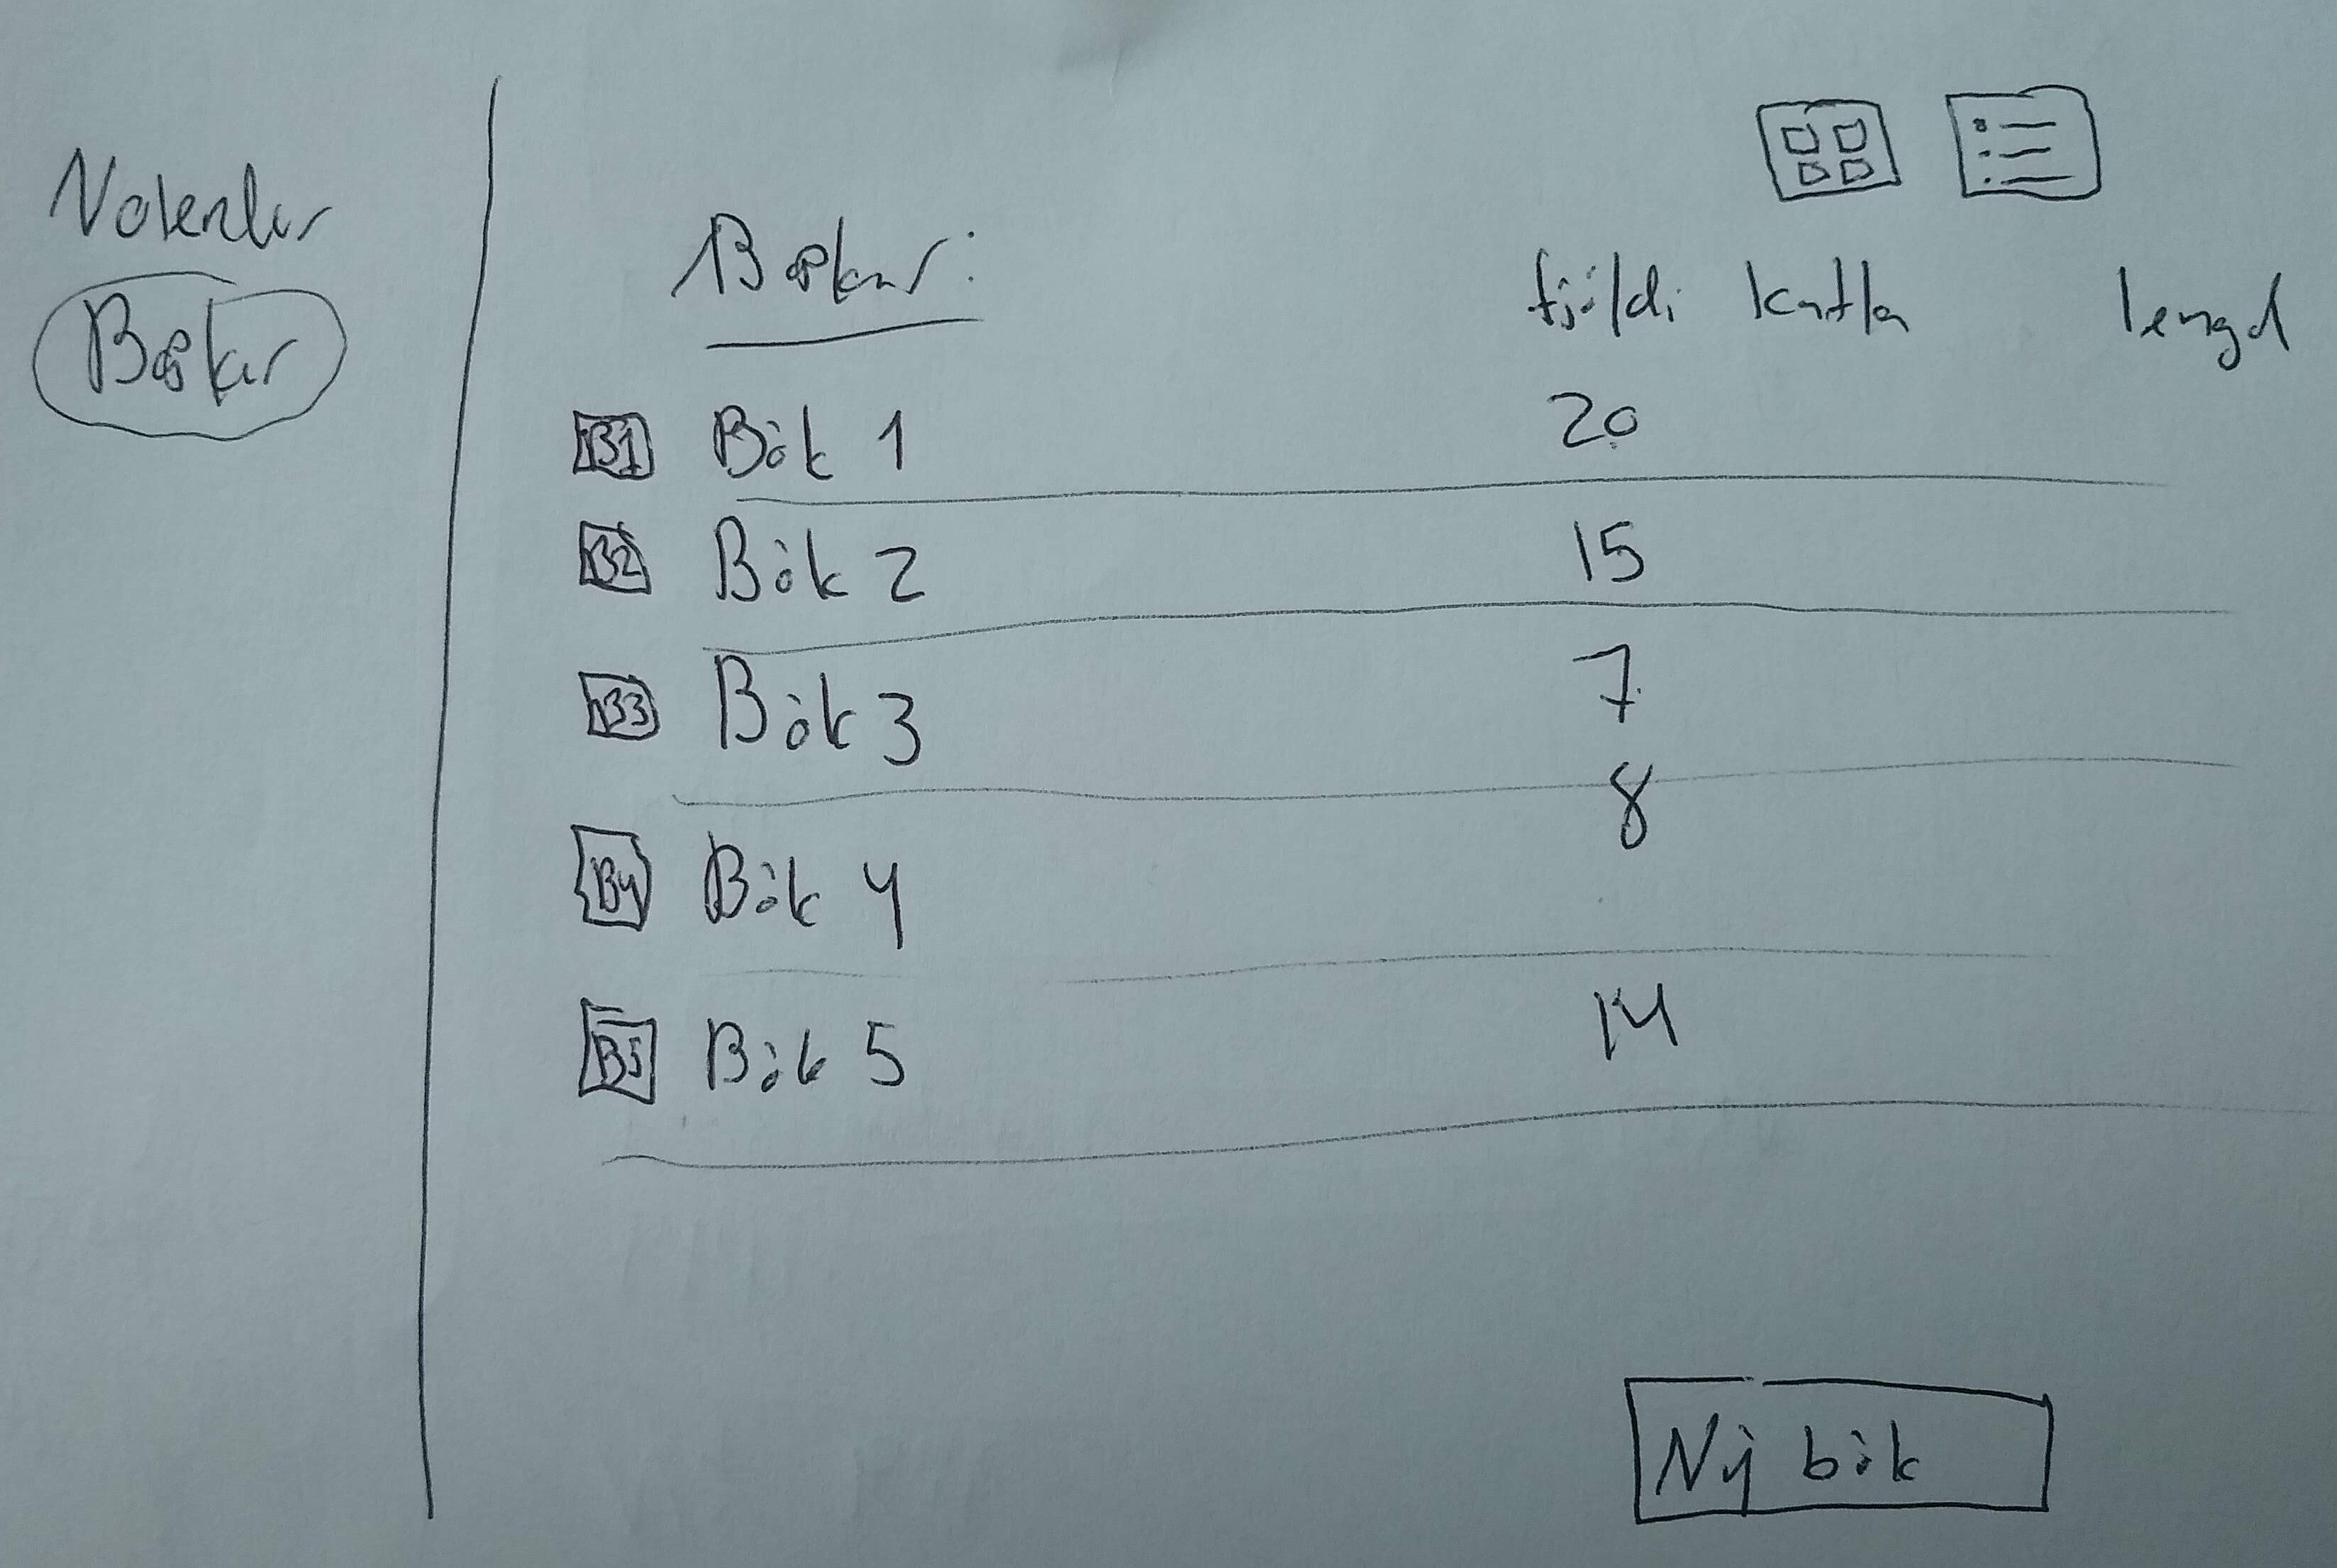 Notendur
Bækur
Bækur:
fjöldi kafla
lengd
B1 Bók 1 20
B2 Bók 2 15
B3 Bók 3 7
8
B4 Bók 4
B5 Bók 5 14
Ný bók